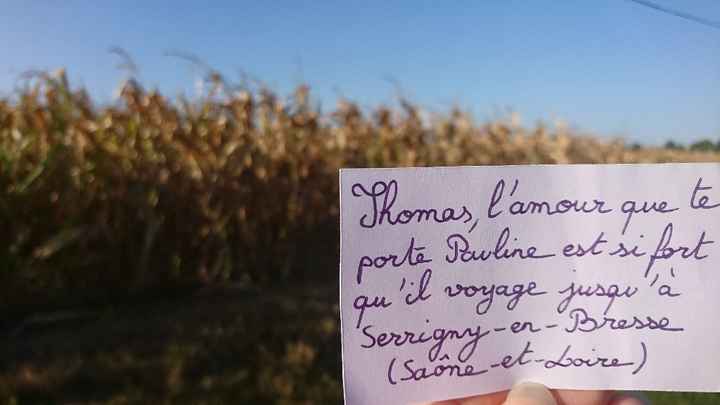 Thomas, l'amour que te
porte Pauline est si fort
qu'il voyage jusqu'à
Serrigny-en-Bresse
(Saône-et-Loire)